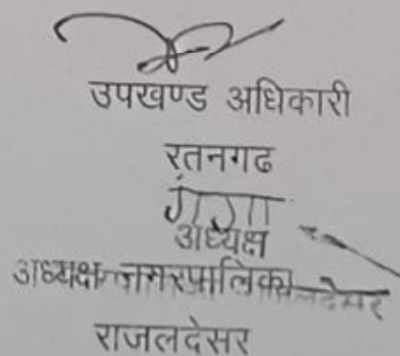 उपखण्ड अधिकारी
रतनगढ
गंगा
अध्यक्ष
अध्यक्ष नगरपालिका
राजलदेसर